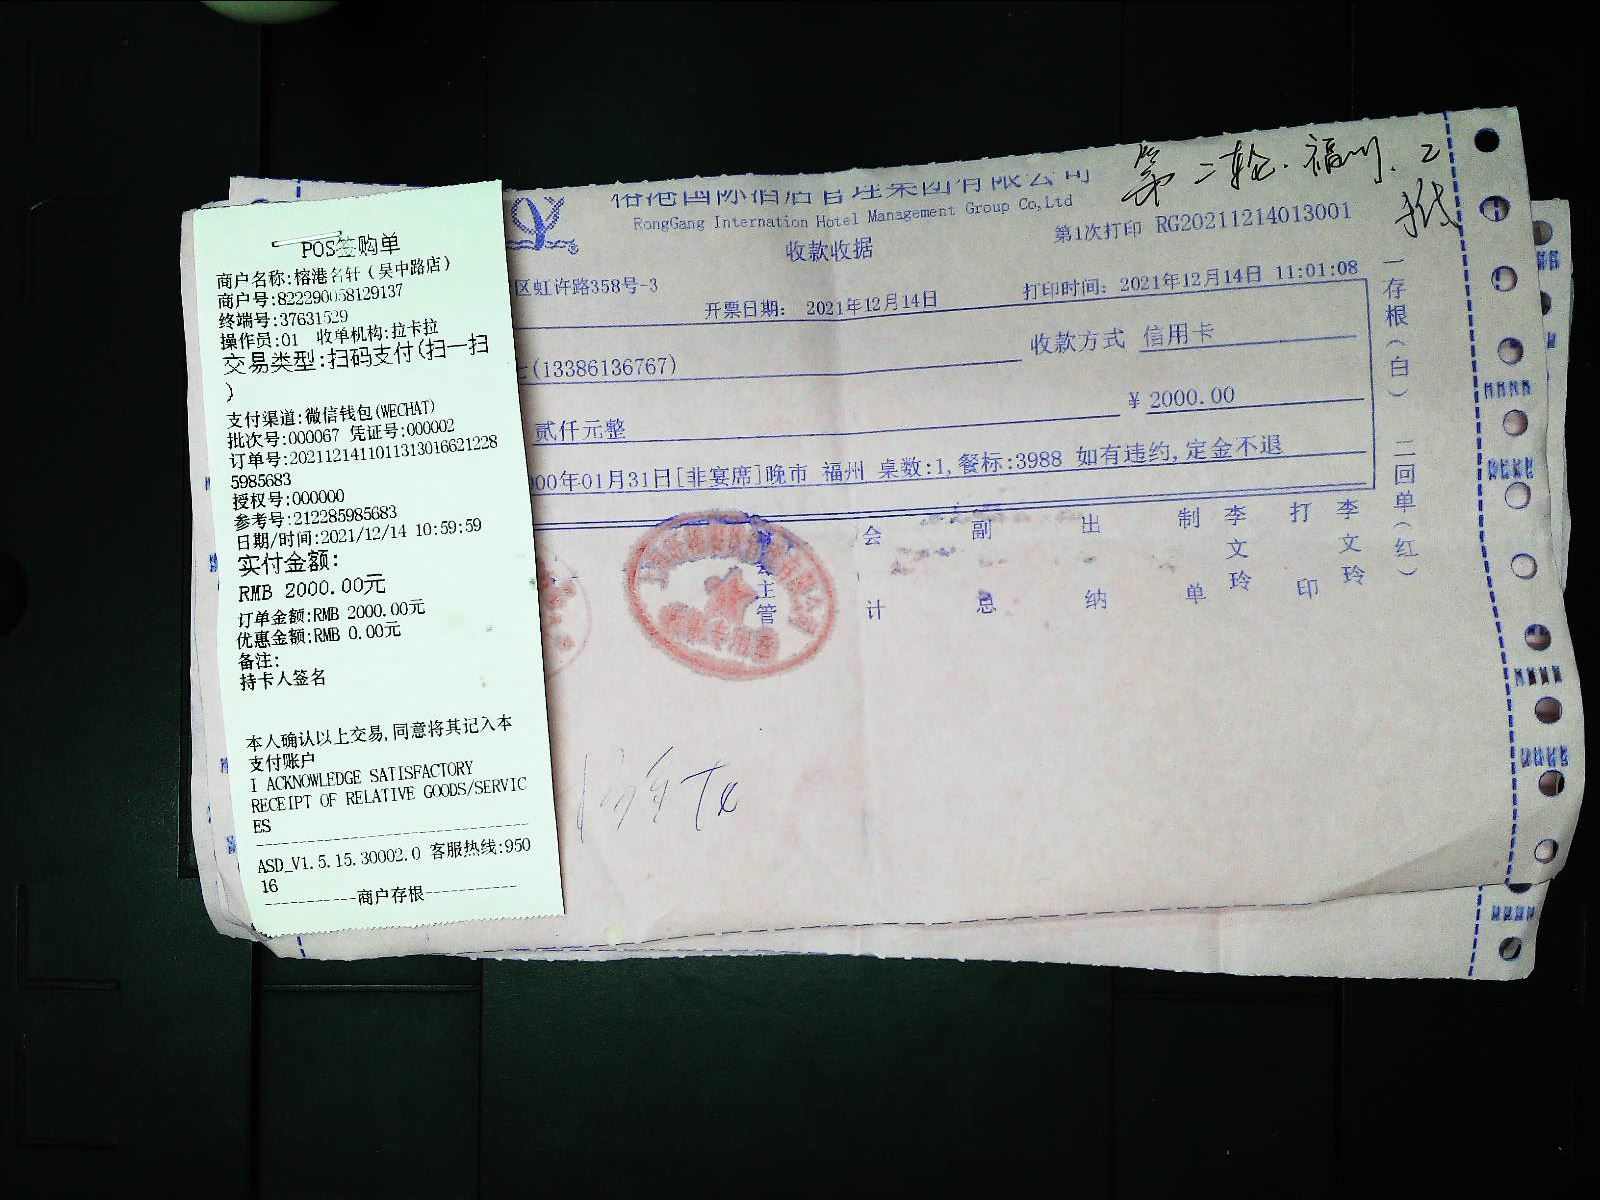 POS签购单
商户名称:榕港名轩（吴中路店）
商户号:822290058129137
终端号:37631529
操作员:01 收单机构:拉卡拉
交易类型:扫码支付(扫一扫
)
支付渠道:微信钱包(WECHAT)
批次号:000067 凭证号:000002
订单号:2021121411011313016621228
5985683
授权号:000000
参考号:212285985683
日期/时间:2021/12/14 10:59:59
实付金额:
RMB 2000.00元
订单金额:RMB 2000.00元
优惠金额:RMB 0.00元
备注:
持卡人签名
本人确认以上交易,同意将其记入本
支付账户
I ACKNOWLEDGE SATISFACTORY
RECEIPT OF RELATIVE GOODS/SERVIC
ES
ASD_V1.5.15.30002.0 客服热线:950
16
商户存根
港国际酒店管理集团有限公司
RongGang Internation Hotel Management Group Co,Ltd
收款收据
第二轮.福州.2
第1次打印 RG20211214013001
区虹许路358号-3
开票日期: 2021年12月14日
打印时间: 2021年12月14日 11:01:08
(13386136767)
收款方式 信用卡
贰仟元整
¥ 2000.00
00年01月31日[非宴席]晚市 福州 桌数:1,餐标:3988 如有违约,定金不退
主管
会计
副总
出纳
制单
李文玲
打印
李文玲
一存根(白) 二回单(红)